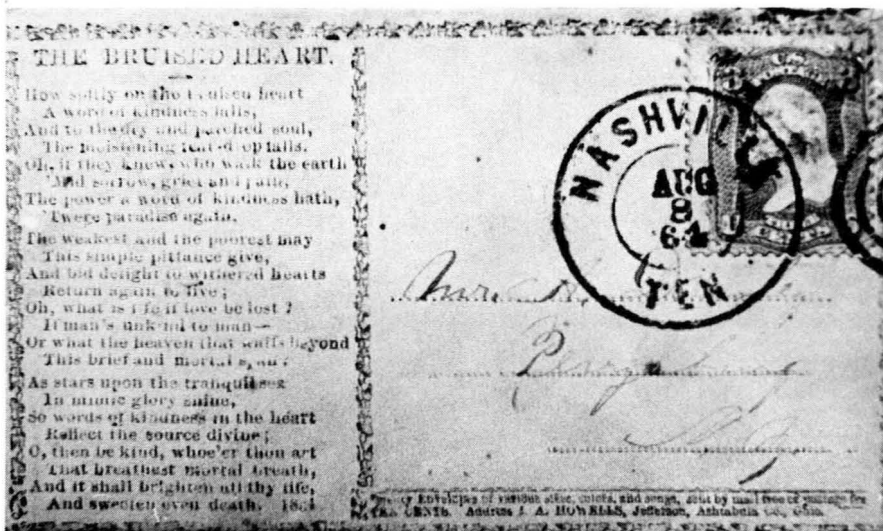 THE BRUISED HEART.
How softly on the bruised heart
A word of kindness falls,
And to the dry and parched soul,
The moistening tear-drop falls.
Oh, if they knew, who walk the earth
'Mid sorrow, grief and pain,
The power a word of kindness hath,
'Twere paradise again.
The weakest and the poorest may
This simple pittance give,
And bid delight to withered hearts
Return again to live;
Oh, what is life if love be lost?
If man's unkind to man—
Or what the heaven that waits beyond
This brief and mortal span?
As stars upon the tranquil sea
In mimic glory shine,
So words of kindness in the heart
Reflect the source divine;
O, then be kind, whoe'er thou art
That breathest mortal breath,
And it shall brighten all thy life,
And sweeten even death.
NASHVILLE
AUG
8
64
TEN
Envelopes of various sizes, colors, and songs, sent by mail free of postage for
TEN CENTS. Address J. A. HOWELLS, Jefferson, Ashtabula Co., Ohio.